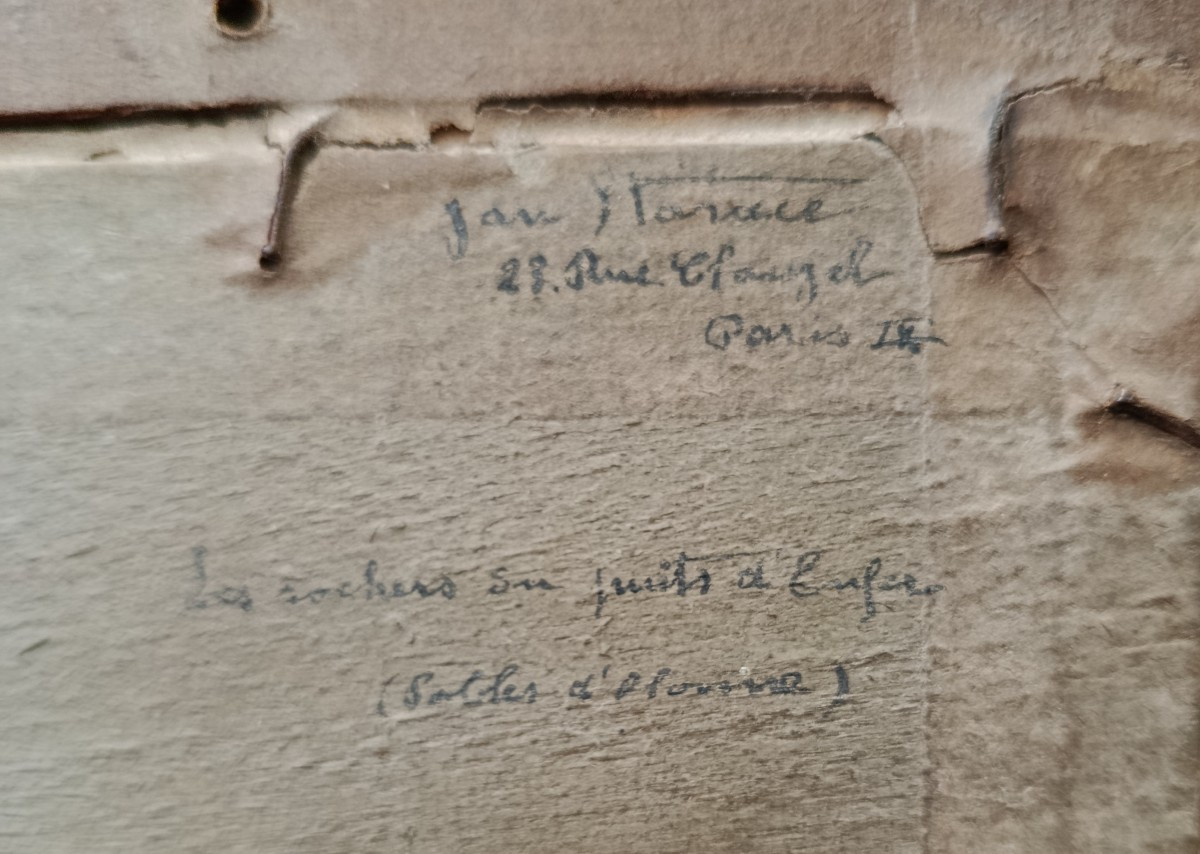 Jan
Rue Clauzel
Paris IX
Les rochers du puits d'Enfer
(Sables d'Olonne)